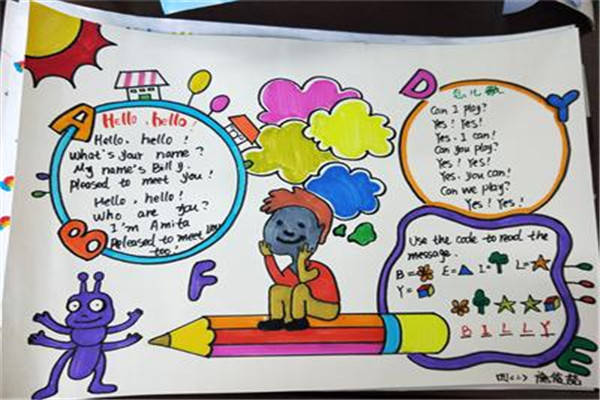 A
Hello, hello!
Hello, hello!
what's your name?
My name's Billy.
pleased to meet you!
Hello, hello!
Who are you?
I'm Amita
Pleased to meet you
too!
B
F
D
Y
Can I play?
Yes! Yes!
Yes. I can!
Can you play?
Yes! Yes!
Yes. you can!
Can we play?
Yes! Yes!
Use the code to read the
message.
B= E= I= L=
Y=
B I L L Y
E